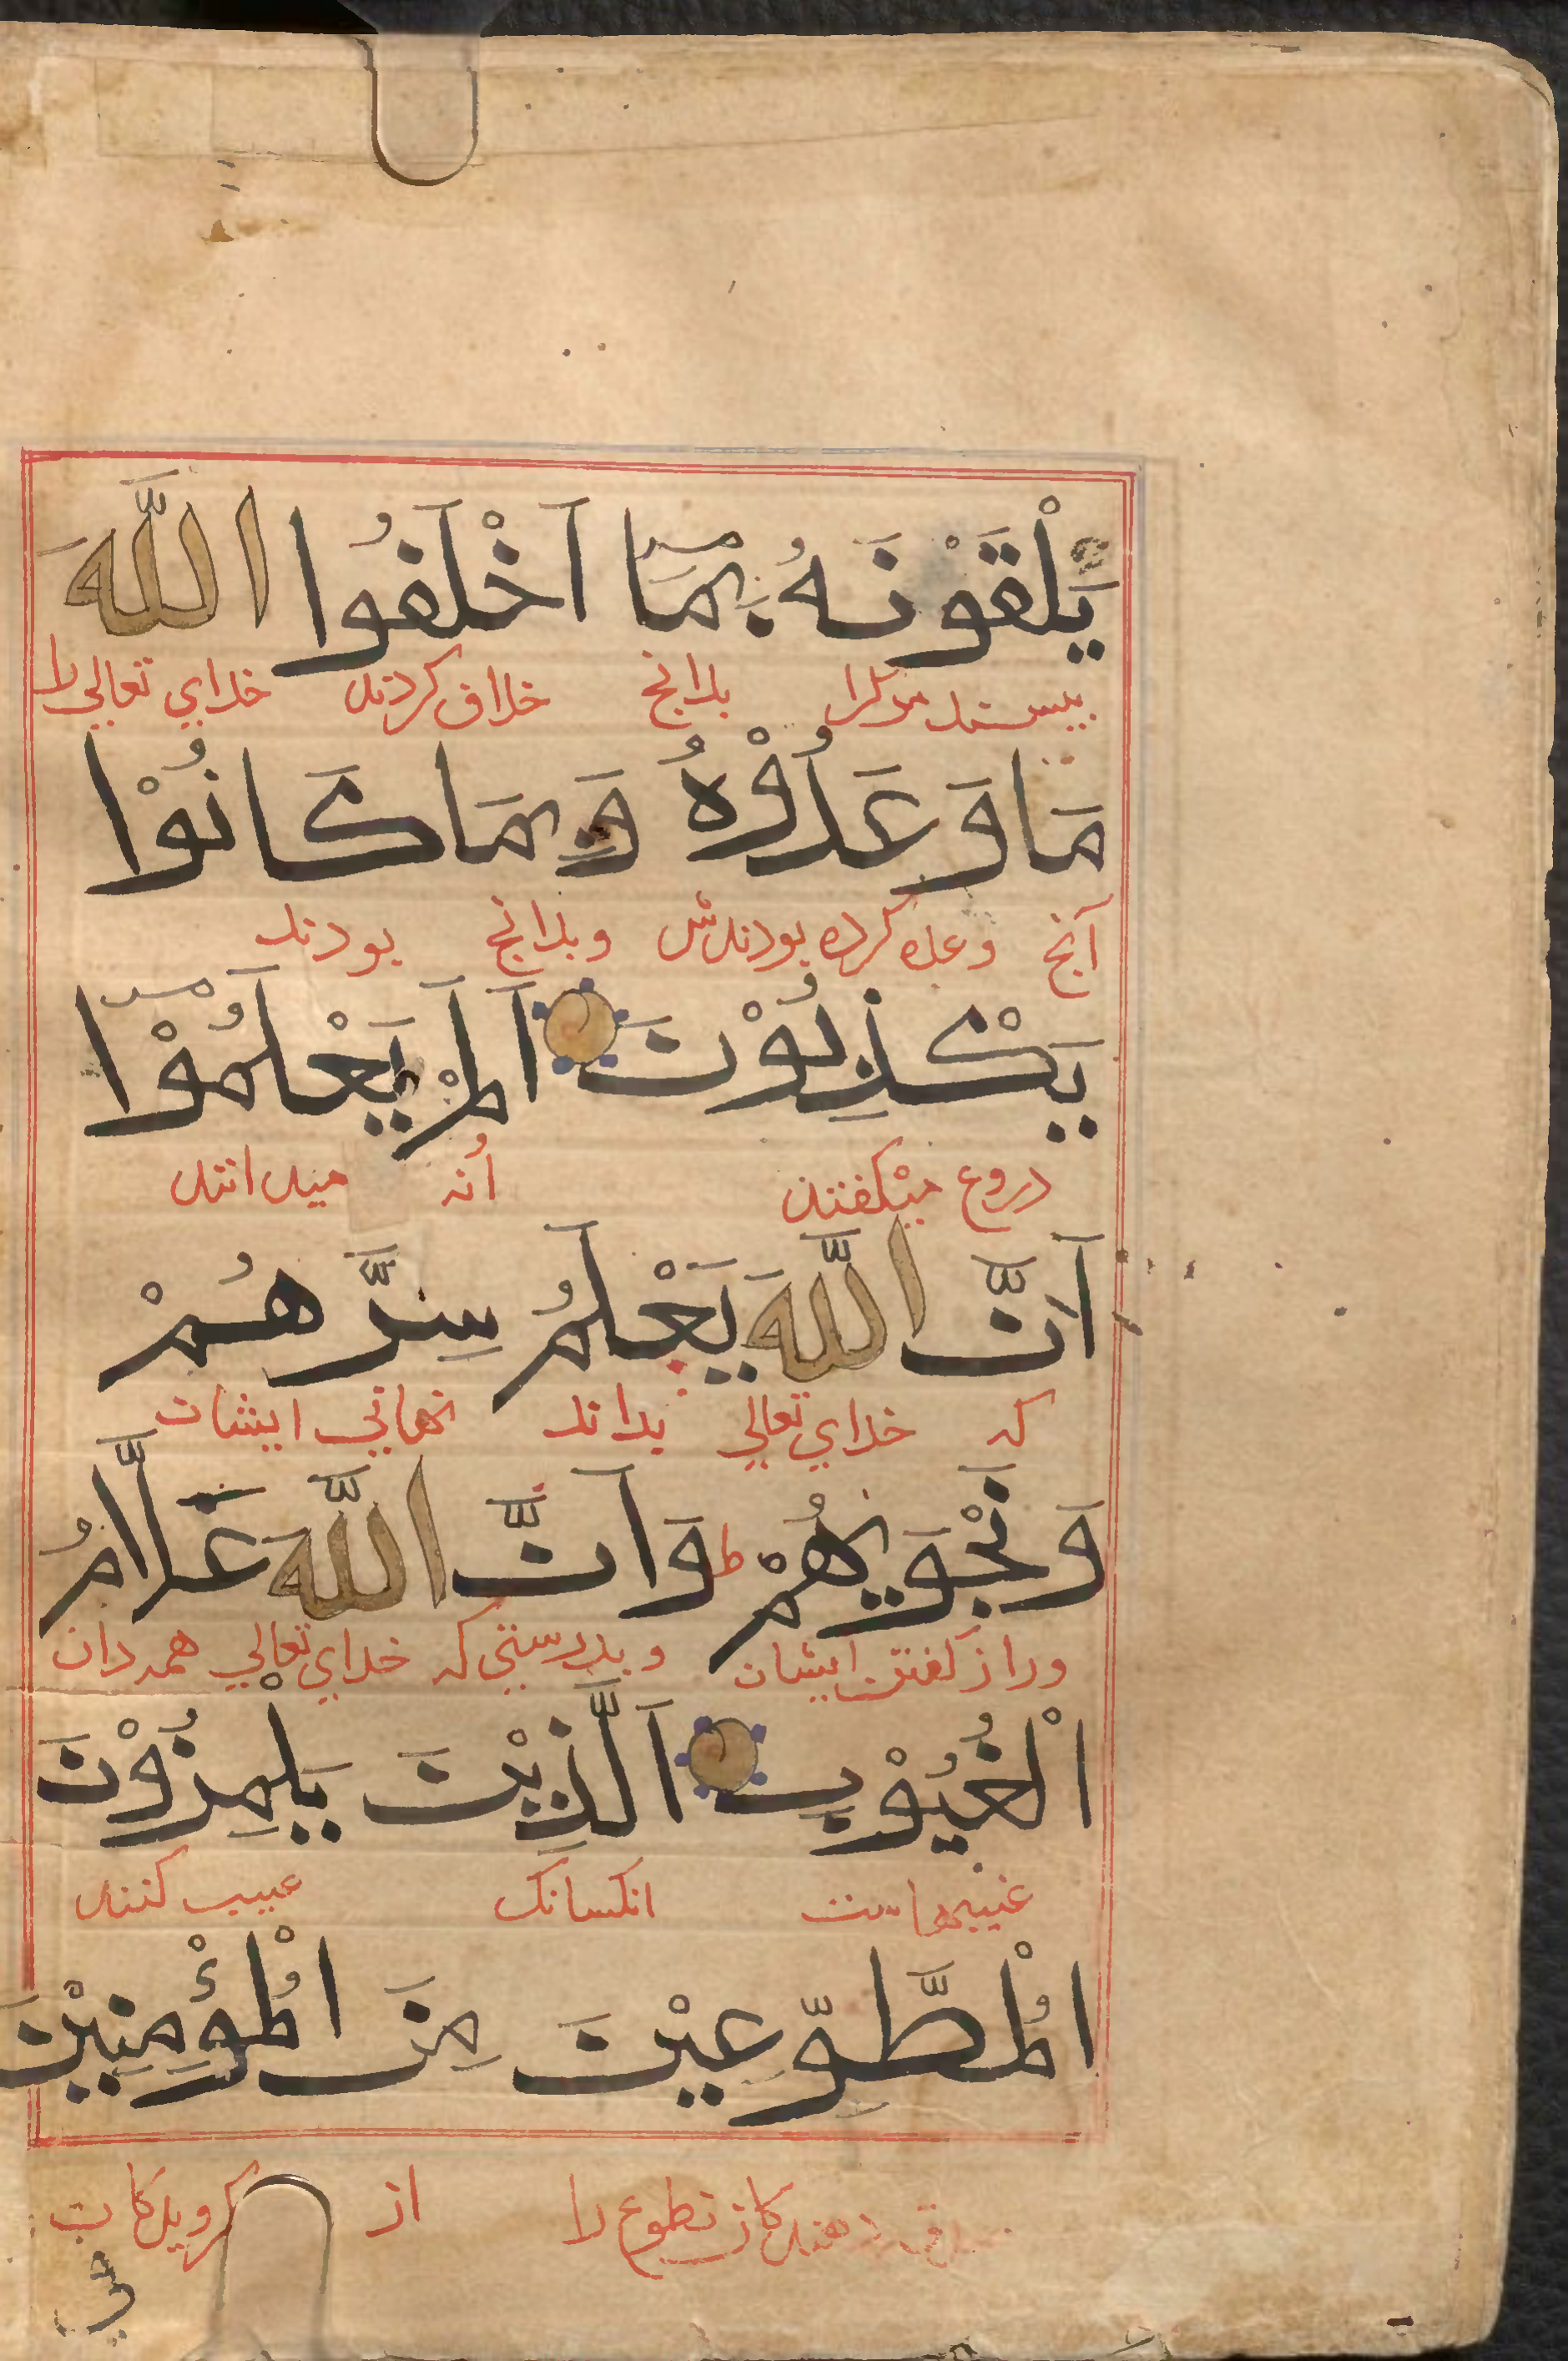 يَلْقَوْنَهُ بِمَا اَخْلَفُوا اللّٰهَ
ببینند مرگرا بدانچ خلاف کردند خدای تعالی را
مَا وَعَدُوْهُ وَبِمَا كَانُوْا
آنچ وعده کرده بودندش وبدانچ بودند
يَكْذِبُوْنَ اَلَمْ يَعْلَمُوْا
دروغ میگفتند أنه میدانند
اَنَّ اللّٰهَ يَعْلَمُ سِرَّهُمْ
که خدای تعالی بداند نهانی ایشان
وَنَجْوٰيهُمْ ط وَاَنَّ اللّٰهَ عَلَّامُ
وراز گفتن ایشان و بدرستی که خدای تعالی همه دان
الْغُيُوْبِ اَلَّذِيْنَ يَلْمِزُوْنَ
غیبهاست انکسانک عیب کنند
الْمُطَّوِّعِيْنَ مِنَ الْمُؤْمِنِيْنَ
تطوع را از گرویدکان
في